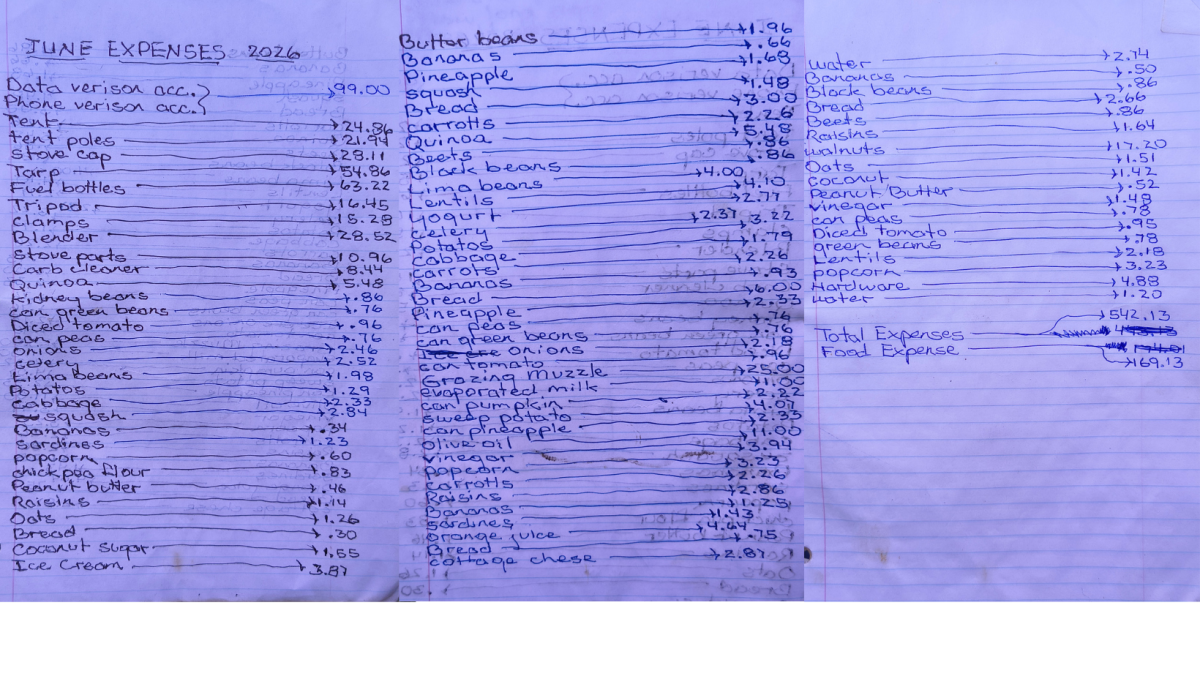 JUNE EXPENSES 2026
Data verison acc. 99.00
Phone verison acc.
Tent 24.86
tent poles 21.94
stove cap 28.11
Tarp 54.86
Fuel bottles 63.22
Tripod 16.45
clamps 15.28
Blender 28.52
stove parts 10.96
Carb cleaner 8.44
Quinoa 5.48
kidney beans .86
can green beans .76
Diced tomato .96
can peas .76
onions 2.46
celery 2.52
Lima beans 1.98
Potatos 1.29
cabbage 2.33
squash 2.84
Bananas .34
sardines 1.23
popcorn .60
chickpea flour .83
Peanut butter .46
Raisins 1.14
Oats 1.26
Bread .30
Coconut sugar 1.55
Ice Cream 3.87
Butter beans 1.96
Bananas .66
Pineapple 1.68
squash 1.48
Bread 3.00
carrotts 2.26
Quinoa 5.48
Beets .86
Black beans .86
Lima beans 4.00
Lentils 4.10
yogurt 2.77
celery 2.37
Potatos 3.22
cabbage 1.79
carrots 2.26
Bananas .93
Bread 6.00
Pineapple 2.33
can peas .76
can green beans .76
onions 2.18
can tomato .96
Grazing Muzzle 25.00
evaporated milk 1.00
can pumpkin 2.22
sweep potato 4.07
can pineapple 2.33
olive oil 11.00
vinegar 3.94
popcorn 3.23
carrotts 2.26
Raisins 2.86
Bananas 1.25
sardines 1.43
orange juice 4.64
Bread .75
cottage chese 2.87
water 2.74
Bananas .50
Black beans .86
Bread 2.66
Beets .86
Raisins 1.64
walnuts 17.20
Oats 1.51
coconut 1.42
Peanut Butter .52
vinegar 1.48
can peas .78
Diced tomato .95
green beans .78
Lentils 2.18
popcorn 3.23
Hardware 4.88
water 1.20
Total Expenses 542.13
Food Expense 169.13